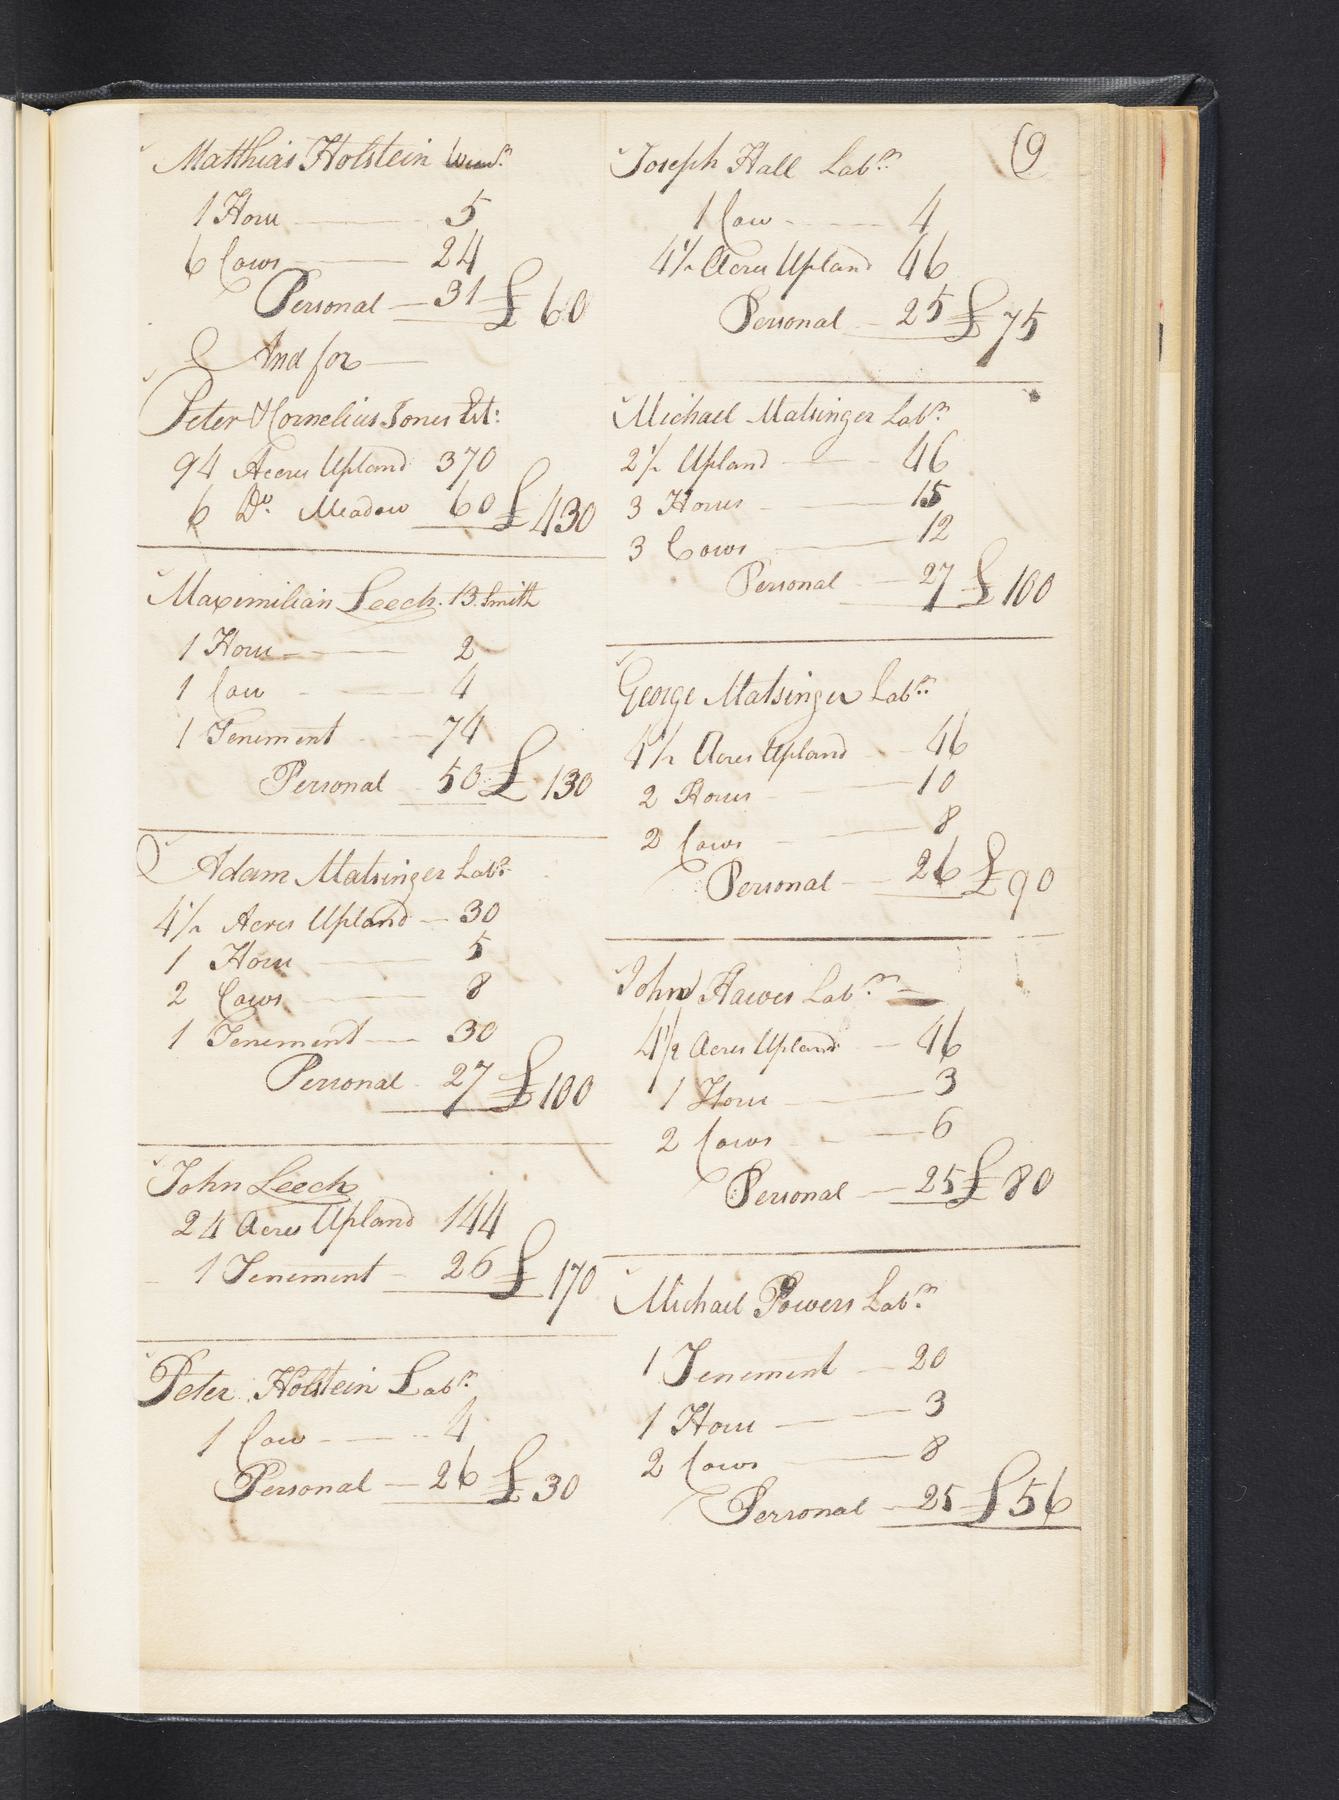 Matthias Holstein
1 Horse 5
6 Cows 24
Personal 31 £ 60
And for
Peter & Cornelius Jones Est:
94 Acres Upland 370
6 Do. Meadow 60 £ 430
Maximilian Leech. B. Smith
1 Horse 2
1 Cow 4
1 Tenement 74
Personal 50 £ 130
Adam Matsinger Labr.
4½ Acres Upland 30
1 Horse 5
2 Cows 8
1 Tenement 30
Personal 27 £ 100
John Leech
24 Acres Upland 144
1 Tenement 26 £ 170
Peter Holstein Labr.
1 Cow 4
Personal 26 £ 30
9
Joseph Hall Labr.
1 Cow 4
4½ Acres Upland 46
Personal 25 £ 75
Michael Matsinger Labr.
2½ Upland 46
3 Horses 15
3 Cows 12
Personal 27 £ 100
George Matsinger Labr.
4½ Acres Upland 46
2 Horses 10
2 Cows 8
Personal 26 £ 90
John Hawes Labr.
4½ Acres Upland 46
1 Horse 3
2 Cows 6
Personal 25 £ 80
Michael Powers Labr.
1 Tenement 20
1 Horse 3
2 Cows 8
Personal 25 £ 56